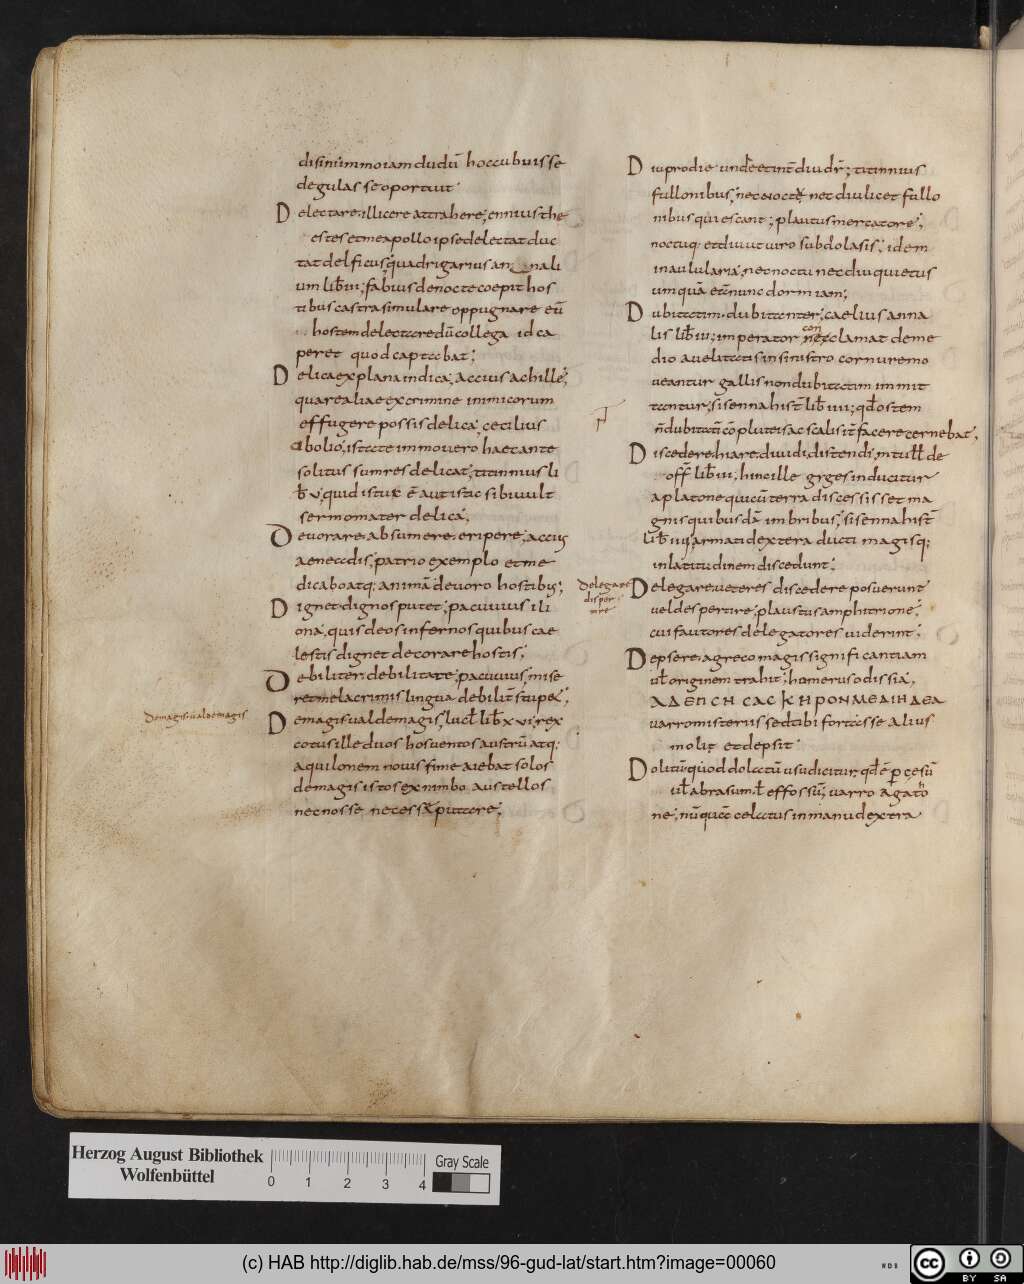 disiniimmoiamdudū hoccubuisse
degulas seoportuit
Delectare; illicere attrahere; enniusthe
estesetmeapollo ipsedelectat duc
tat delficus; quadrigarius an nali
um lib̄ iii; fabius denoctecoepit hos
tibus castra simulare oppugnare eū
hostem delectaredūcollega id ca
peret quod captabat;
Delica explana indica; accius achille;
quare alia ex crimine inimicorum
effugere possis delica; cecilius
abolio; istacte immovero haec ante
solitus sum res delicat; titinnius li
b̄ v; quid istuc ē aut istic sibi vult
sermo mater delica;
Devorare absumere eripere; accius
aeneadis; patrio exemplo et me
dicabo atq; animā devoro hostibus;
Dignet dignos putet; pacuvius ili
ona; quis deos infernos quibus cae
lestis dignet decorare hostis;
Debiliter debilitate; pacuvius; mise
ret me lacrimis lingua debilit̄ stupet;
Demagis valdemagis; lucil̄ lib̄ xvi; rex
cotus ille duos hos ventos austrū atq;
aquilonem novissime aiebat solos
demagis istos ex nimbo austellos
nec nosse necesse putare;
Demagis valdemagis
Diu pro die unde et int̄diu dr̄; titinnius
fullonibus; nec noctu nec diu licet fullo
nibus quiescant; plautus mercatore;
noctuq; et diu ut viro subdola sis; idem
in aulularia; nec noctu nec diu quietus
umquā etnunc dormiam;
Dubitatim dubitanter; caelius anna
lis lib̄ iii; imperator conclamat de me
con
dio a velitatis in sinistro cornu remo
veantur gallis non dubitatim immit
tantur; sisenna hist̄ lib̄ iiii; qd̄ ostem
n̄dubitatī cōpluteis ac scalis it̄ facere cernebat;
Discedere hiare dividi distendi; m tull̄ de
off̄ lib̄ iii; hinc ille gyges inducitur
a platone qui cū terra discessisset ma
gnis quibusdā imbribus; sisenna hist̄
lib̄ iiii; armati dextera ducti magisq;
in latitudinem discedunt;
Delegare
disper
tire
Delegare veteres discedere posuerunt
vel dispertire; plautus amphitrione;
cui fautores delegatores viderint;
Depsere a greco magis significantiam
vl̄ originem trahit; homerus odissia;
ΑΔΕΠCΗ CΑC ΚΗΡΟΝΜΕΔΙΗΔΕΑ
varro misteriis sed tibi fortasse alius
molit et depsit
Dolitū quod dolatū usu dicitur; qd̄ ē p̄ cesū
vl̄ abrasum l̄ effossū; varro agatho
ne; nūquā celatus in manu dextra
Herzog August Bibliothek
Wolfenbüttel
0 1 2 3 4
Gray Scale
(c) HAB http://diglib.hab.de/mss/96-gud-lat/start.htm?image=00060
WDB
cc BY SA